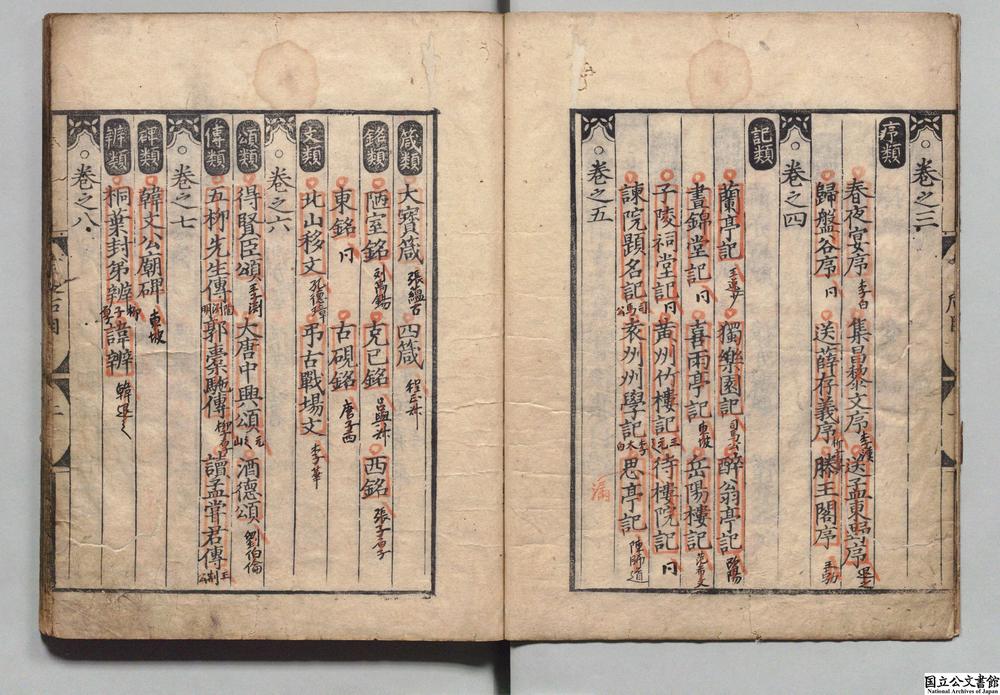 卷之三
序類
春夜宴序 李白 集昌黎文序 李漢 送孟東野序 退之
歸盤谷序 同 送薛存義序 滕王閣序 王勃
卷之四
記類
蘭亭記 王逸少 獨樂園記 司馬公 醉翁亭記 歐陽
晝錦堂記 同 喜雨亭記 東坡 岳陽樓記 范希文
子陵祠堂記 同 黃州竹樓記 王元之 待樓院記 同
諫院題名記 司馬公 袁州州學記 李太白 思亭記 陳師道
卷之五
箴類
大寶箴 張蘊古 四箴 程正叔
銘類
陋室銘 劉禹錫 克己銘 呂與叔 西銘 張子厚
東銘 同 古硯銘 唐子西
文類
北山移文 孔德璋 弔古戰場文 李華
卷之六
頌類
得賢臣頌 王淵 大唐中興頌 元次山 酒德頌 劉伯倫
傳類
五柳先生傳 陶淵明 郭橐馳傳 柳子厚 讀孟甞君傳 王荊公
卷之七
碑類
韓文公廟碑 東坡
辨類
桐葉封弟辨 柳子厚 諱辨 韓退之
卷之八
国立公文書館
National Archives of Japan